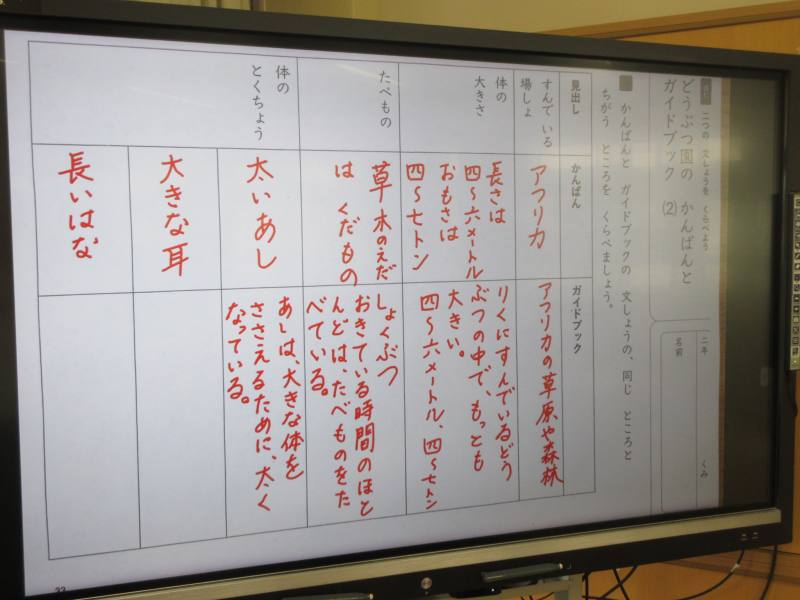 二つの 文しょうを くらべよう
どうぶつ園の かんばんと
ガイドブック (2)
二年 くみ
名前
かんばんと ガイドブックの 文しょうの、同じ ところと
ちがう ところを くらべましょう。
見出し
かんばん
ガイドブック
すんで いる
場しょ
アフリカ
アフリカの草原や森林
体の
大きさ
長さは
四～六メートル
おもさは
四～七トン
りくにすんでいるどう
ぶつの中で、もっとも
大きい。
四～六メートル、四～七トン
たべもの
草 木のえだ
は くだもの
しょくぶつ
おきている時間のほと
んどは、たべものをた
べている。
体の
とくちょう
太いあし
あしは、大きな体を
ささえるために、太く
なっている。
大きな耳
長いはな